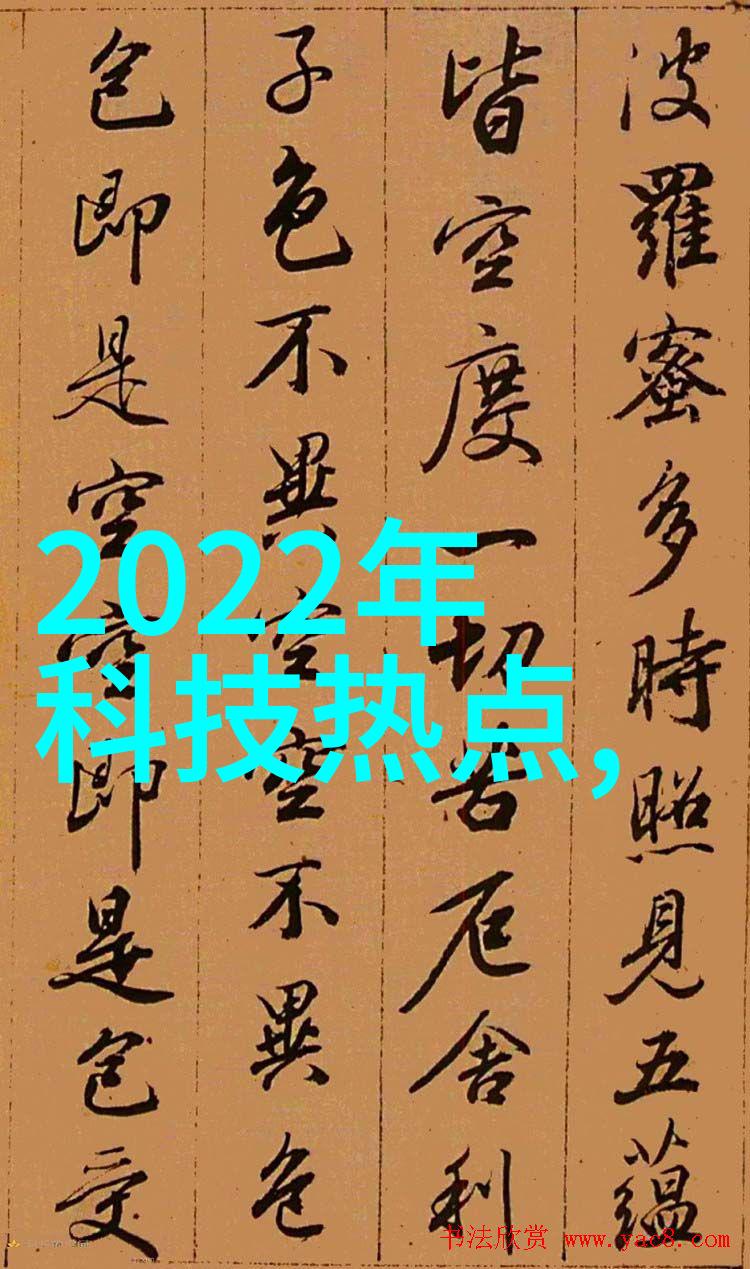 波羅蜜多時照見五蘊
皆空度一切苦厄舍利
子色不異空空不異色
色即是空空即是色受
2022年
科技热点,
书法欣赏 www.yac8.com